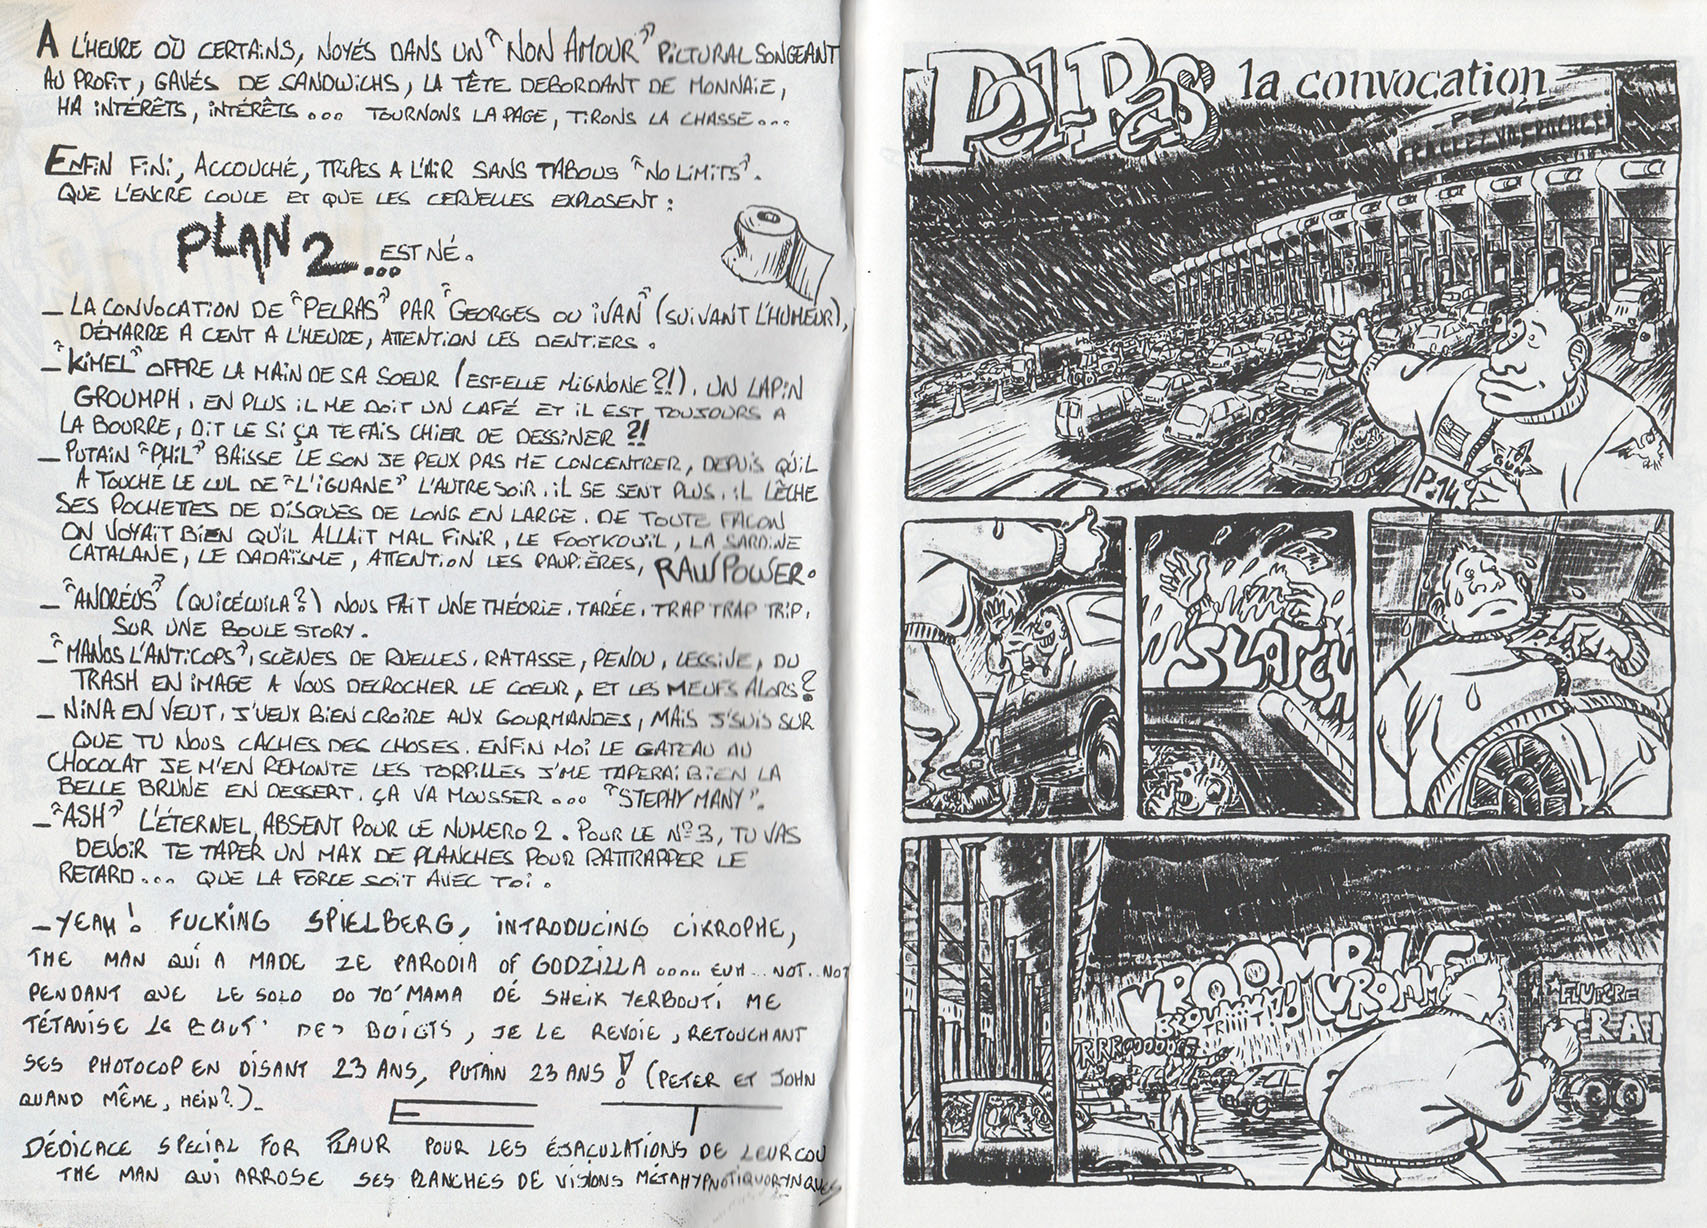 A L'HEURE OÙ CERTAINS, NOYÉS DANS UN "NON AMOUR" PICTURAL SONGEANT
AU PROFIT, GAVÉS DE SANDWICHS, LA TÊTE DEBORDANT DE MONNAIE,
HA INTÉRÊTS, INTÉRÊTS ... TOURNONS LA PAGE, TIRONS LA CHASSE...
ENFIN FINI, ACCOUCHÉ, TRIPES A L'AIR SANS TABOUS "NO LIMITS".
QUE L'ENCRE COULE ET QUE LES CERVELLES EXPLOSENT :
PLAN 2... EST NÉ.
_ LA CONVOCATION DE "PELRAS" PAR "GEORGES OU IVAN" (SUIVANT L'HUMEUR),
DÉMARRE A CENT A L'HEURE, ATTENTION LES DENTIERS.
_ "KIMEL" OFFRE LA MAIN DE SA SOEUR (EST-ELLE MIGNONE?!). UN LAPIN
GROUMPH. EN PLUS IL ME DOIT UN CAFÉ ET IL EST TOUJOURS A
LA BOURRE, DIT LE SI ÇA TE FAIS CHIER DE DESSINER ?!
_ PUTAIN "PHIL" BAISSE LE SON JE PEUX PAS ME CONCENTRER, DEPUIS QU'IL
A TOUCHÉ LE CUL DE "L'IGUANE" L'AUTRE SOIR. IL SE SENT PLUS. IL LÈCHE
SES POCHETTES DE DISQUES DE LONG EN LARGE. DE TOUTE FACON
ON VOYAIT BIEN QU'IL ALLAIT MAL FINIR, LE FOOTKOUIL, LA SARDINE
CATALANE, LE DADAÏSME, ATTENTION LES PAUPIÈRES, RAW POWER.
_ "ANDRÉUS" (QUICÉCUILA?) NOUS FAIT UNE THÉORIE. TARÉE. TRAP TRAP TRIP.
SUR UNE BOULE STORY.
_ "MANOS L'ANTICOPS", SCÈNES DE RUELLES. RATASSE, PENDU, LESSIVE, DU
TRASH EN IMAGE A VOUS DECROCHER LE COEUR, ET LES MEUFS ALORS?
_ NINA EN VEUT. J'VEUX BIEN CROIRE AUX GOURMANDES, MAIS J'SUIS SUR
QUE TU NOUS CACHES DES CHOSES. ENFIN MOI LE GATEAU AU
CHOCOLAT JE M'EN REMONTE LES TORPILLES J'ME TAPERAI BIEN LA
BELLE BRUNE EN DESSERT. ÇA VA MOUSSER ... "STEPHY MANY".
_ "ASH" L'ÉTERNEL, ABSENT POUR LE NUMERO 2. POUR LE N°3, TU VAS
DEVOIR TE TAPER UN MAX DE PLANCHES POUR RATTRAPPER LE
RETARD... QUE LA FORCE SOIT AVEC TOI.
_ YEAH! FUCKING SPIELBERG, INTRODUCING CIKROPHE,
THE MAN QUI A MADE ZE PARODIA OF GODZILLA .... EUH ... NOT.. NOT
PENDANT QUE LE SOLO DO YO'MAMA DÉ SHEIK YERBOUTI ME
TÉTANISE LE BOUT DES DOIGTS, JE LE REVOIE, RETOUCHANT
SES PHOTOCOP EN DISANT 23 ANS, PUTAIN 23 ANS! (PETER ET JOHN
QUAND MÊME, HEIN?)_
ET
DÉDICACE SPECIAL FOR PLAUR POUR LES ÉJACULATIONS DE LEURCOU
THE MAN QUI ARROSE SES PLANCHES DE VISIONS MÉTAHYPNOTIQUORYNQUES
POL-RAS la convocation
P.14
GUN
SLATCH
VROOMBLE
BROUM
TRIIIT!!
VROMM
RRROOOOO
FLUTCRE
TRAI